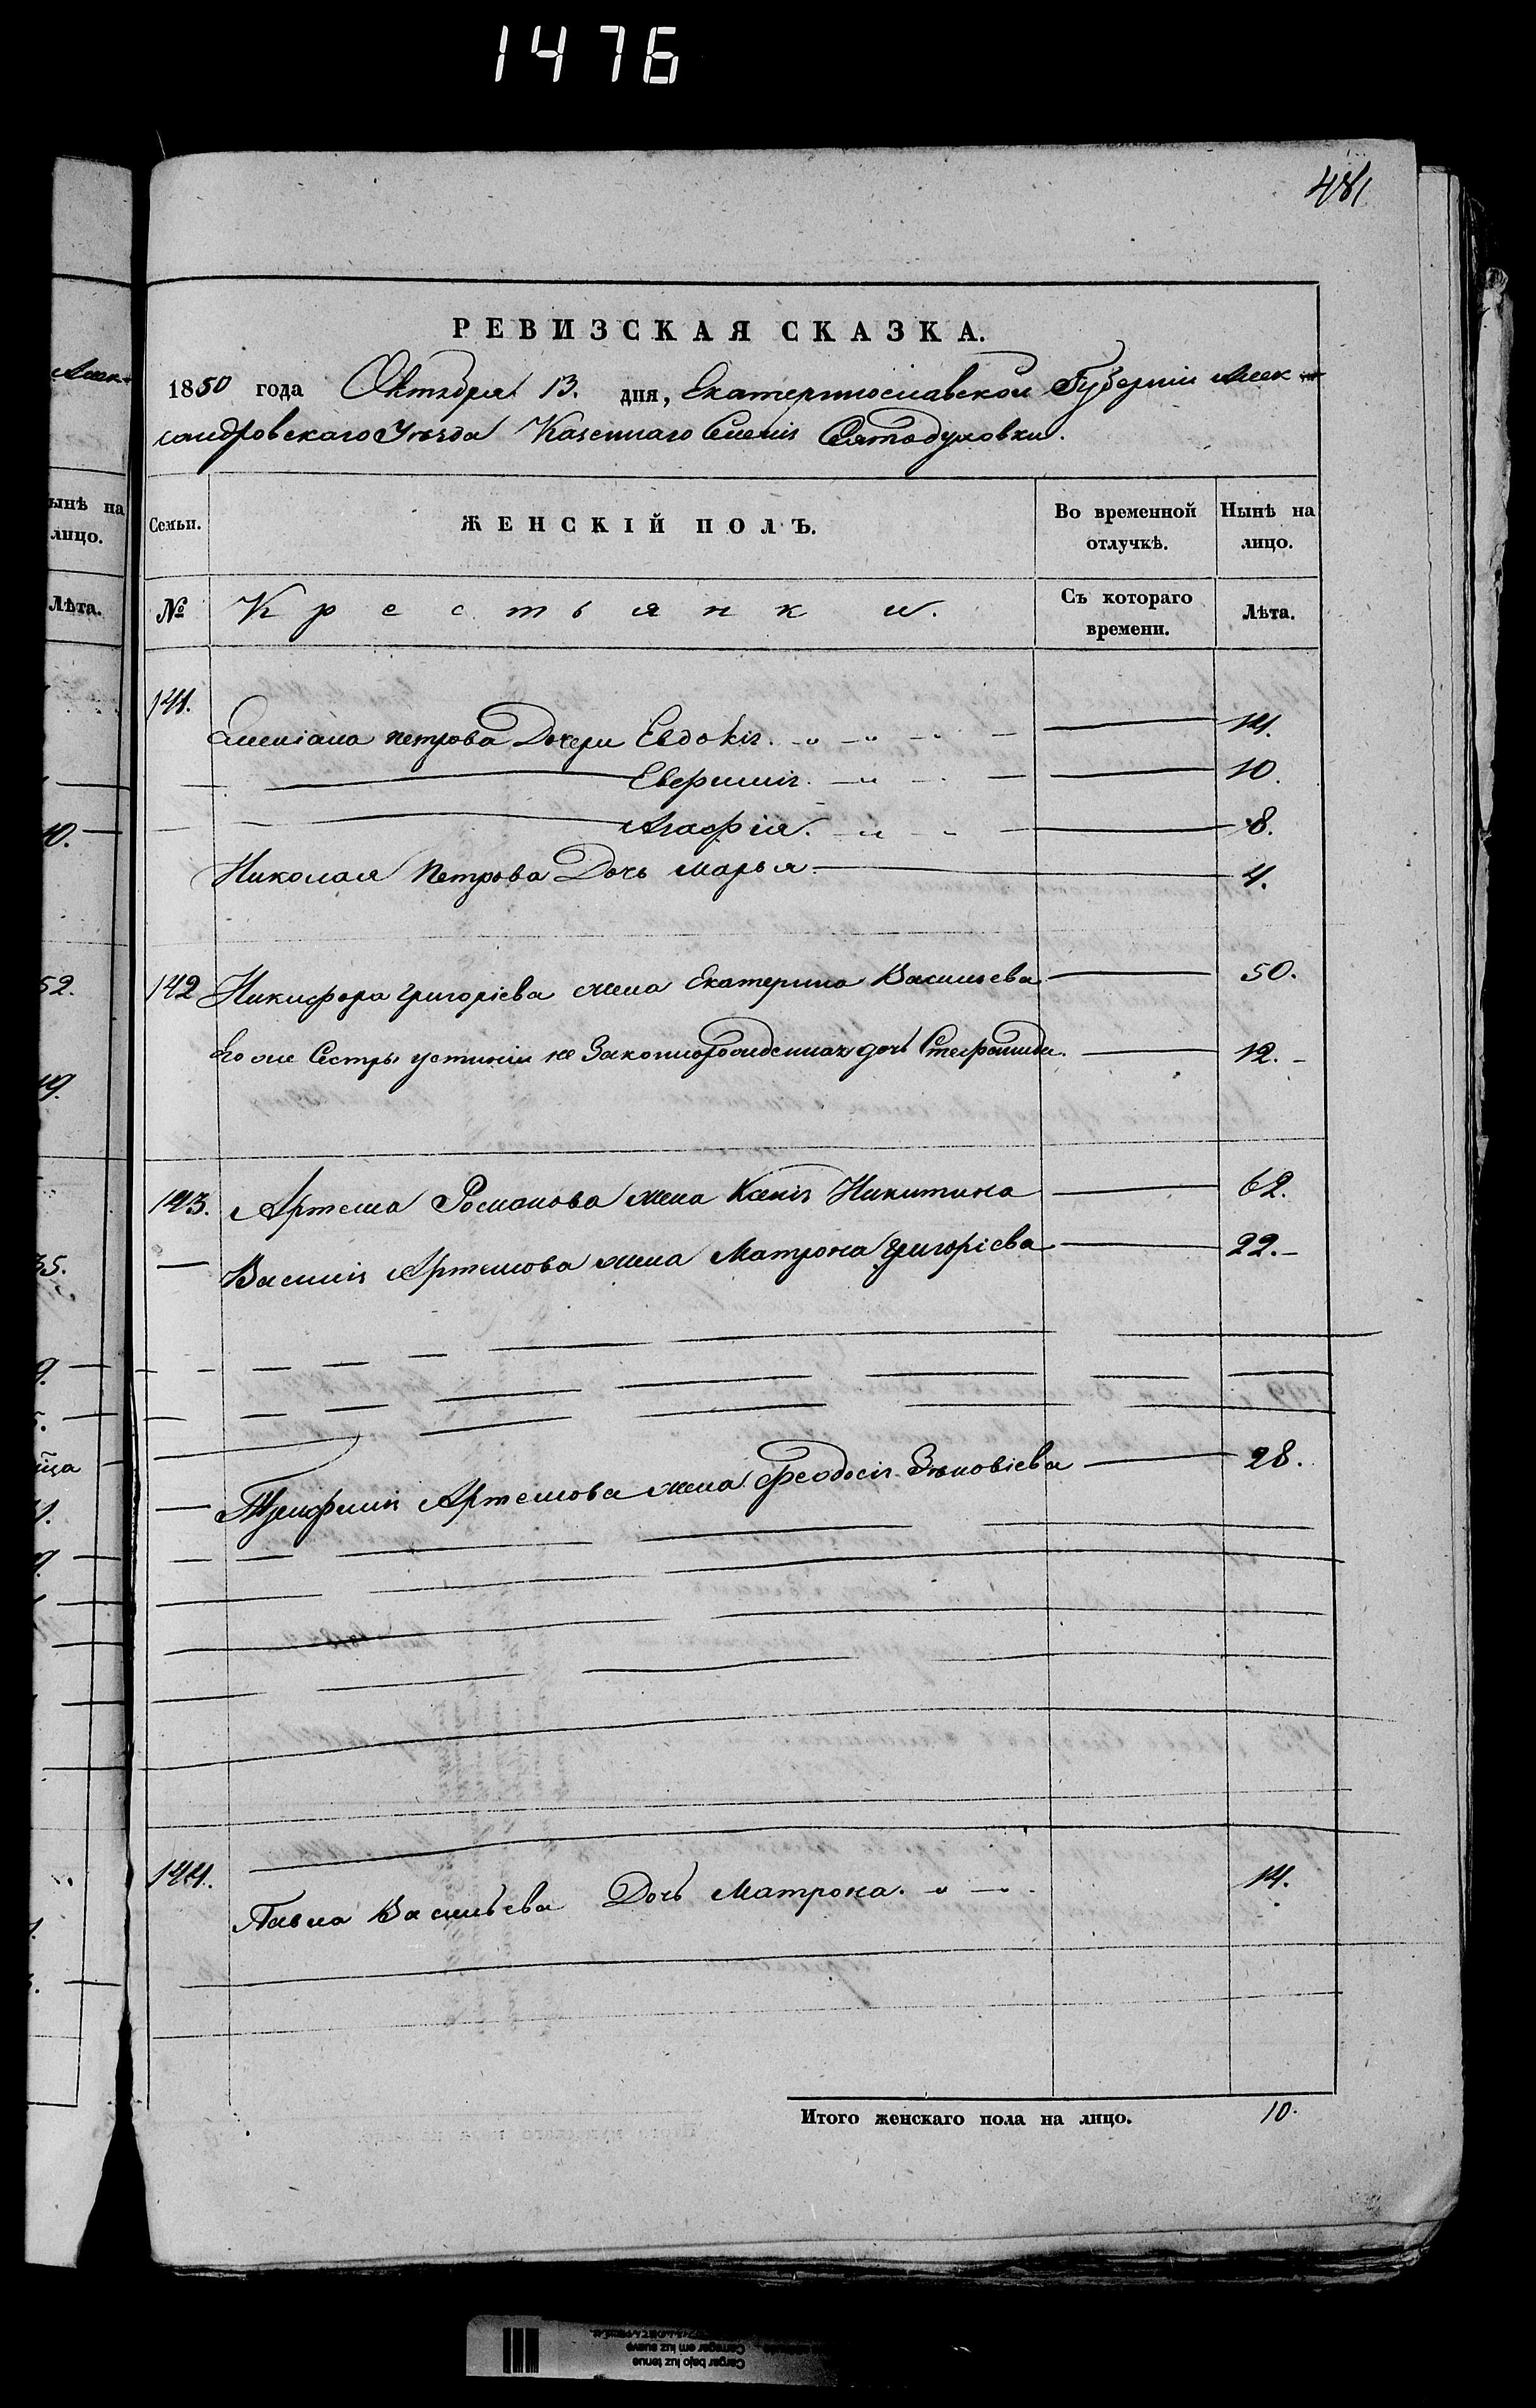 1476
481
РЕВИЗСКАЯ СКАЗКА.
1850 года Октября 13. дня, Екатеринославской Губерніи Алек-
сандровскаго Уѣзда Казеннаго Селенія Святодуховки.
Семьи. ЖЕНСКІЙ ПОЛЪ. Во временной отлучкѣ. Нынѣ на лицо.
№ Крестьянки. Съ котораго времени. Лѣта.
141.
Емеліана Петрова Дочери Евдокія. 14.
10.
Агафія. 8.
Николая Петрова Дочь Марья 4.
142 Никифора Григоріева жена Екатерина Васильева 50.
Его же Сестры Устиніи не Законнорожденная дочь 12.
143. Артема Романова жена Никитина 62.
Василія Артемова жена Матрона Григоріева 22.
Трифилія Артемова жена Феодосія Зѣновіева 28.
144.
Павла Васильева Дочь Матрона. 14.
Итого женскаго пола на лицо. 10.
ынѣ на
лицо.
Лѣта.